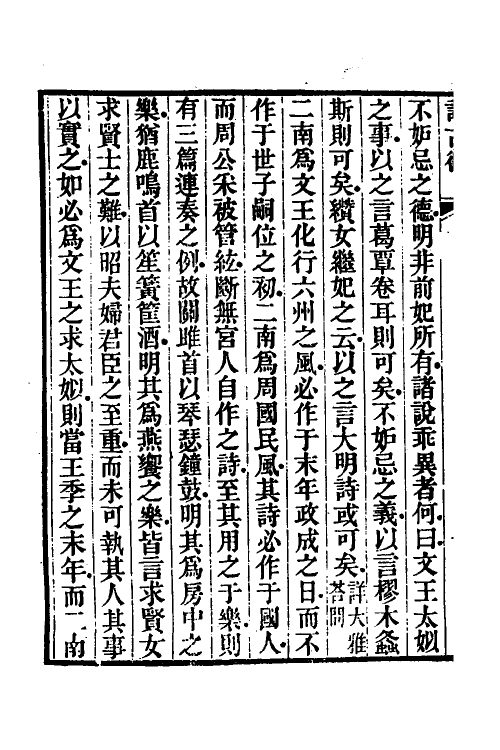 不妒忌之德明非前妃所有諸說乖異者何曰文王太姒
之事以之言葛覃卷耳則可矣不妒忌之義以言樛木螽
斯則可矣纘女繼妃之云以之言大明詩或可矣詳大雅答問
二南爲文王化行六州之風必作于末年政成之日而不
作于世子嗣位之初二南爲周國民風其詩必作于國人
而周公采被管絃斷無宮人自作之詩至其用之于樂則
有三篇連奏之例故關雎首以琴瑟鐘鼓明其爲房中之
樂猶鹿鳴首以笙簧筐酒明其爲燕饗之樂皆言求賢女
求賢士之難以昭夫婦君臣之至重而未可執其人其事
以實之如必爲文王之求太姒則當王季之末年而二南